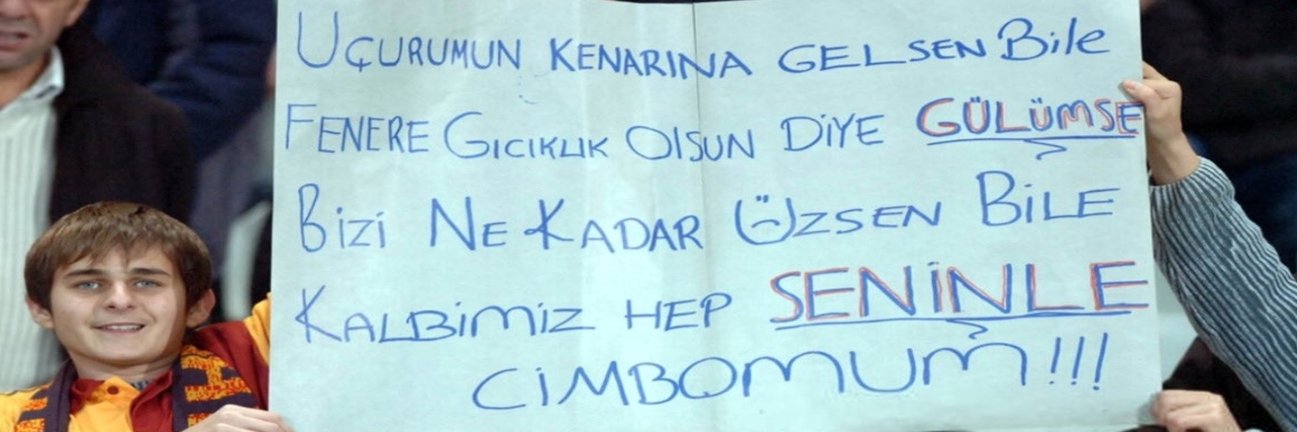 UÇURUMUN KENARINA GELSEN BİLE
FENERE GICIKLIK OLSUN DİYE GÜLÜMSE
BİZİ NE KADAR ÜZSEN BİLE
KALBİMİZ HEP SENİNLE
CİMBOMUM!!!